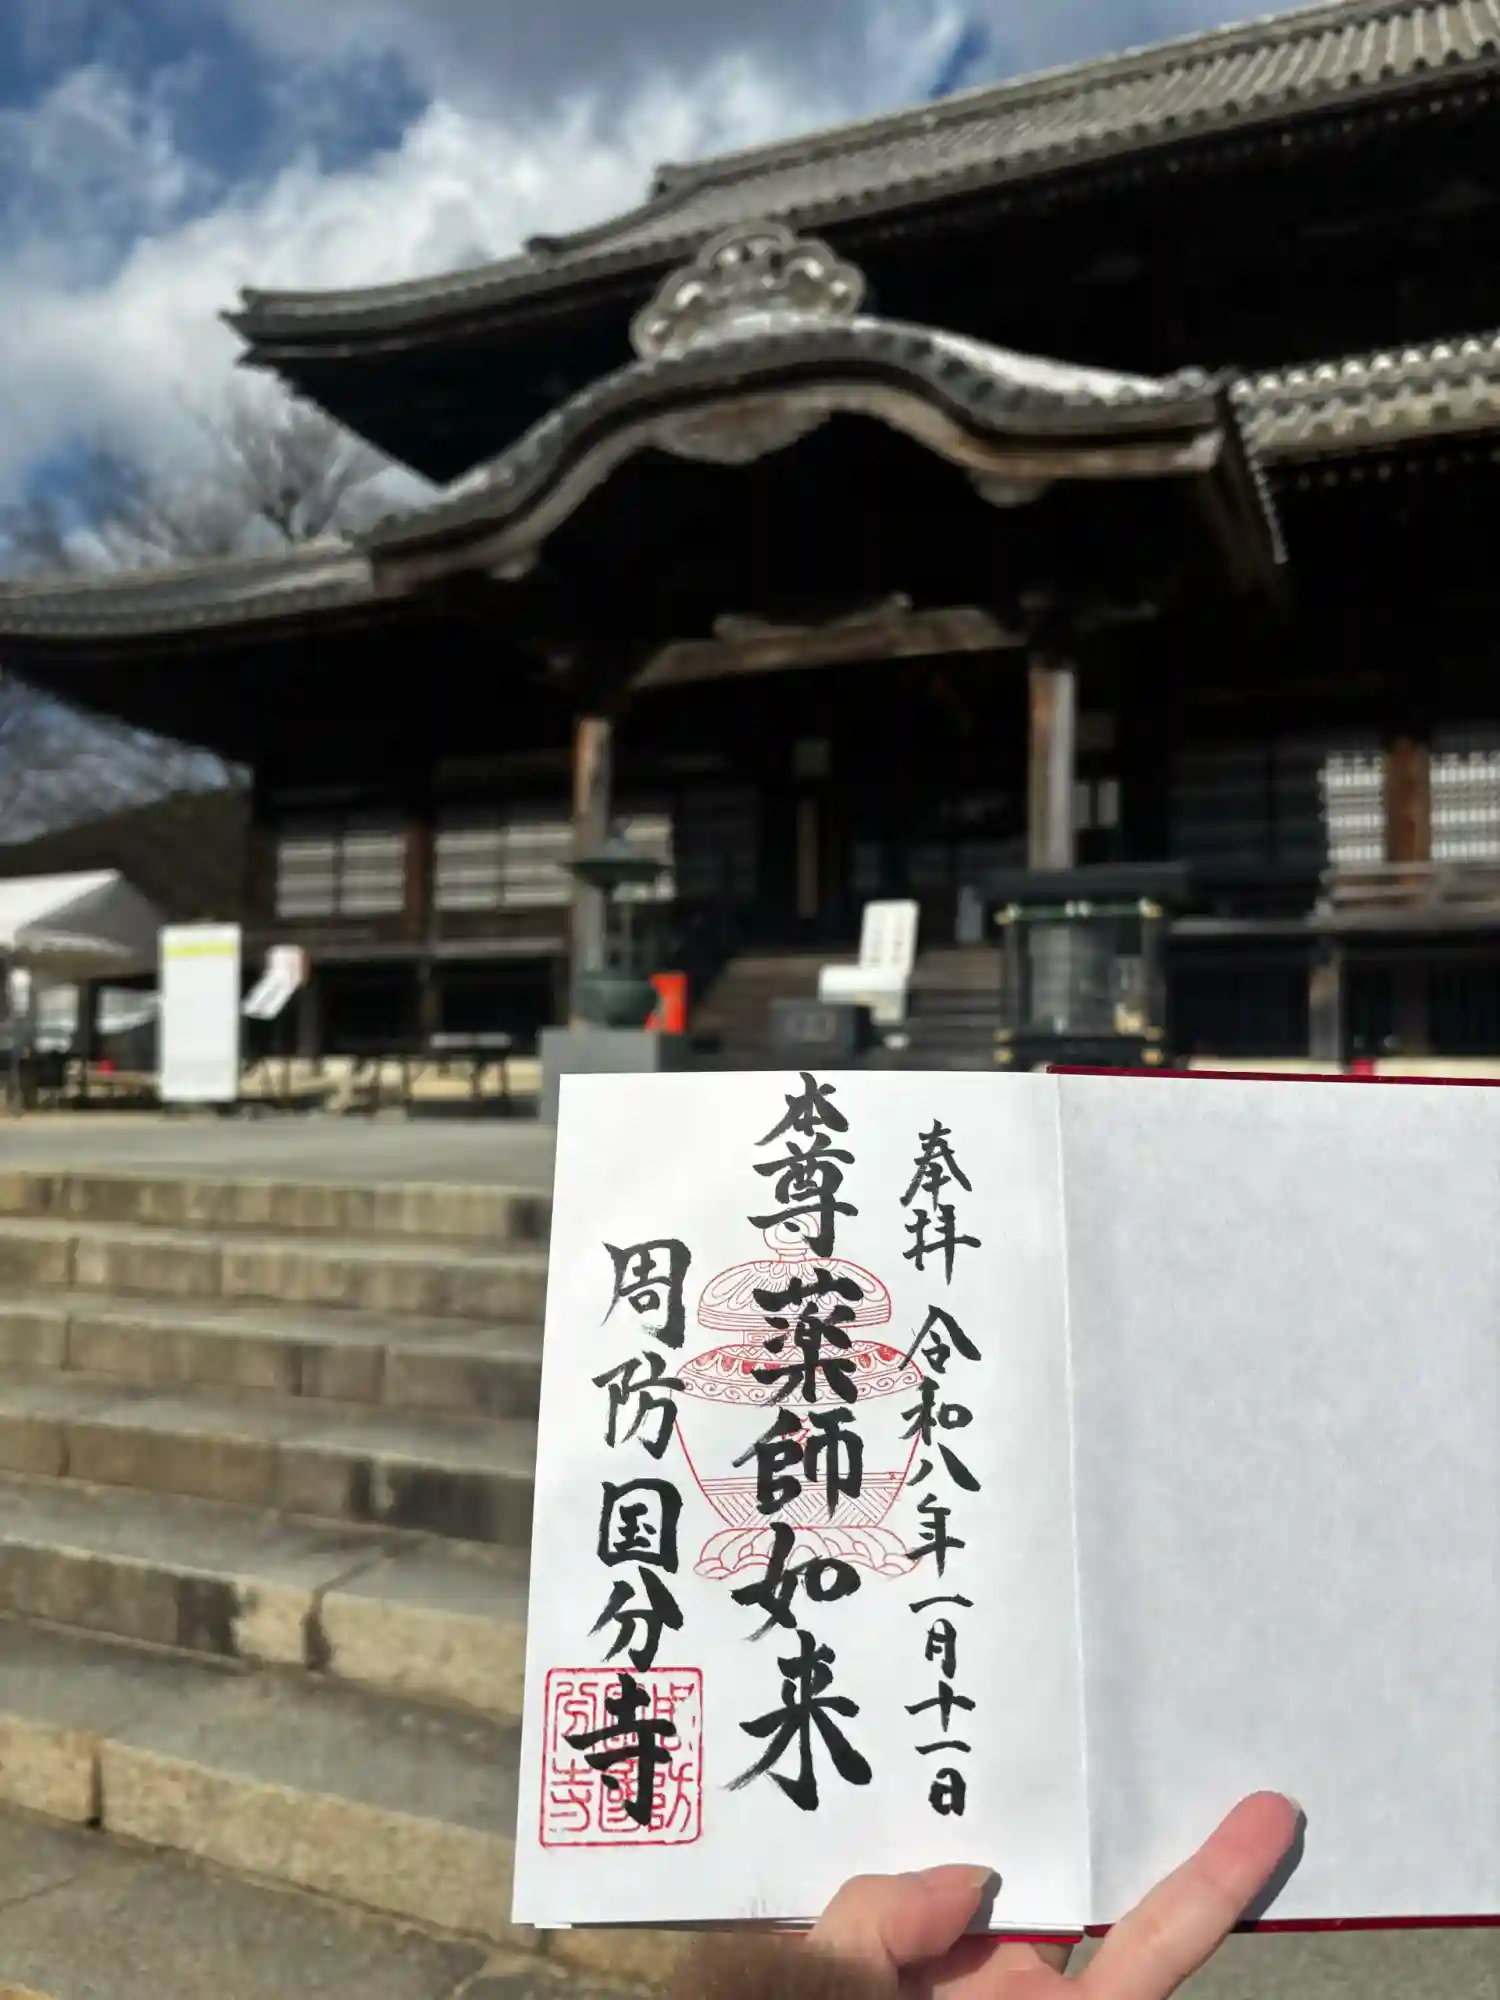 奉拝 令和八年一月十一日
本尊薬師如来
周防国分寺